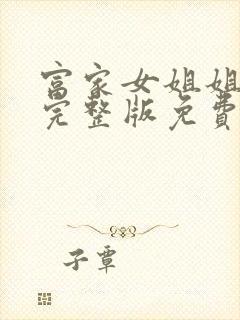 富家女姐姐
完整版免费
子覃